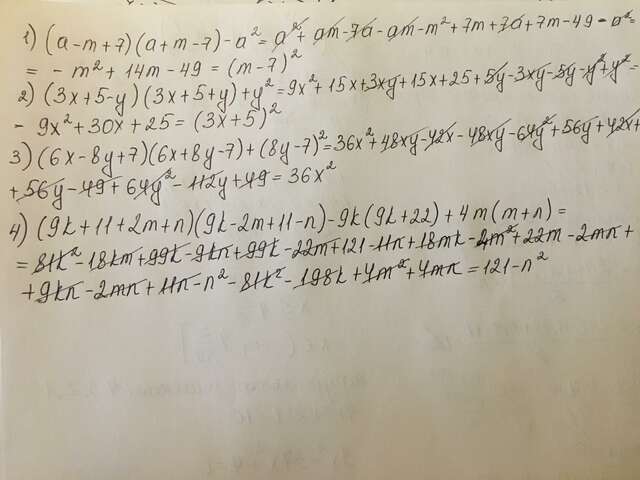 1) (a-m+7)(a+m-7)-a² = a²+am-7a-am-m²+7m+7a+7m-49-a²=
= -m²+14m-49 = (m-7)²
2) (3x+5-y)(3x+5+y)+y²=9x²+15x+3xy+15x+25+5y-3xy-5y-y²+y²=
- 9x²+30x+25=(3x+5)²
3) (6x-8y+7)(6x+8y-7)+(8y-7)²=36x²+48xy-42x-48xy-64y²+56y+42x+
+56y-49+64y²-112y+49=36x²
4) (9k+11+2m+n)(9k-2m+11-n)-9k(9k+22)+4m(m+n)=
= 81k²-18km+99k-9kn+99k-22m+121-11n+18mk-4m²+22m-2mn+
+9kn-2mn+11n-n²-81k²-198k+4m²+4mn=121-n²